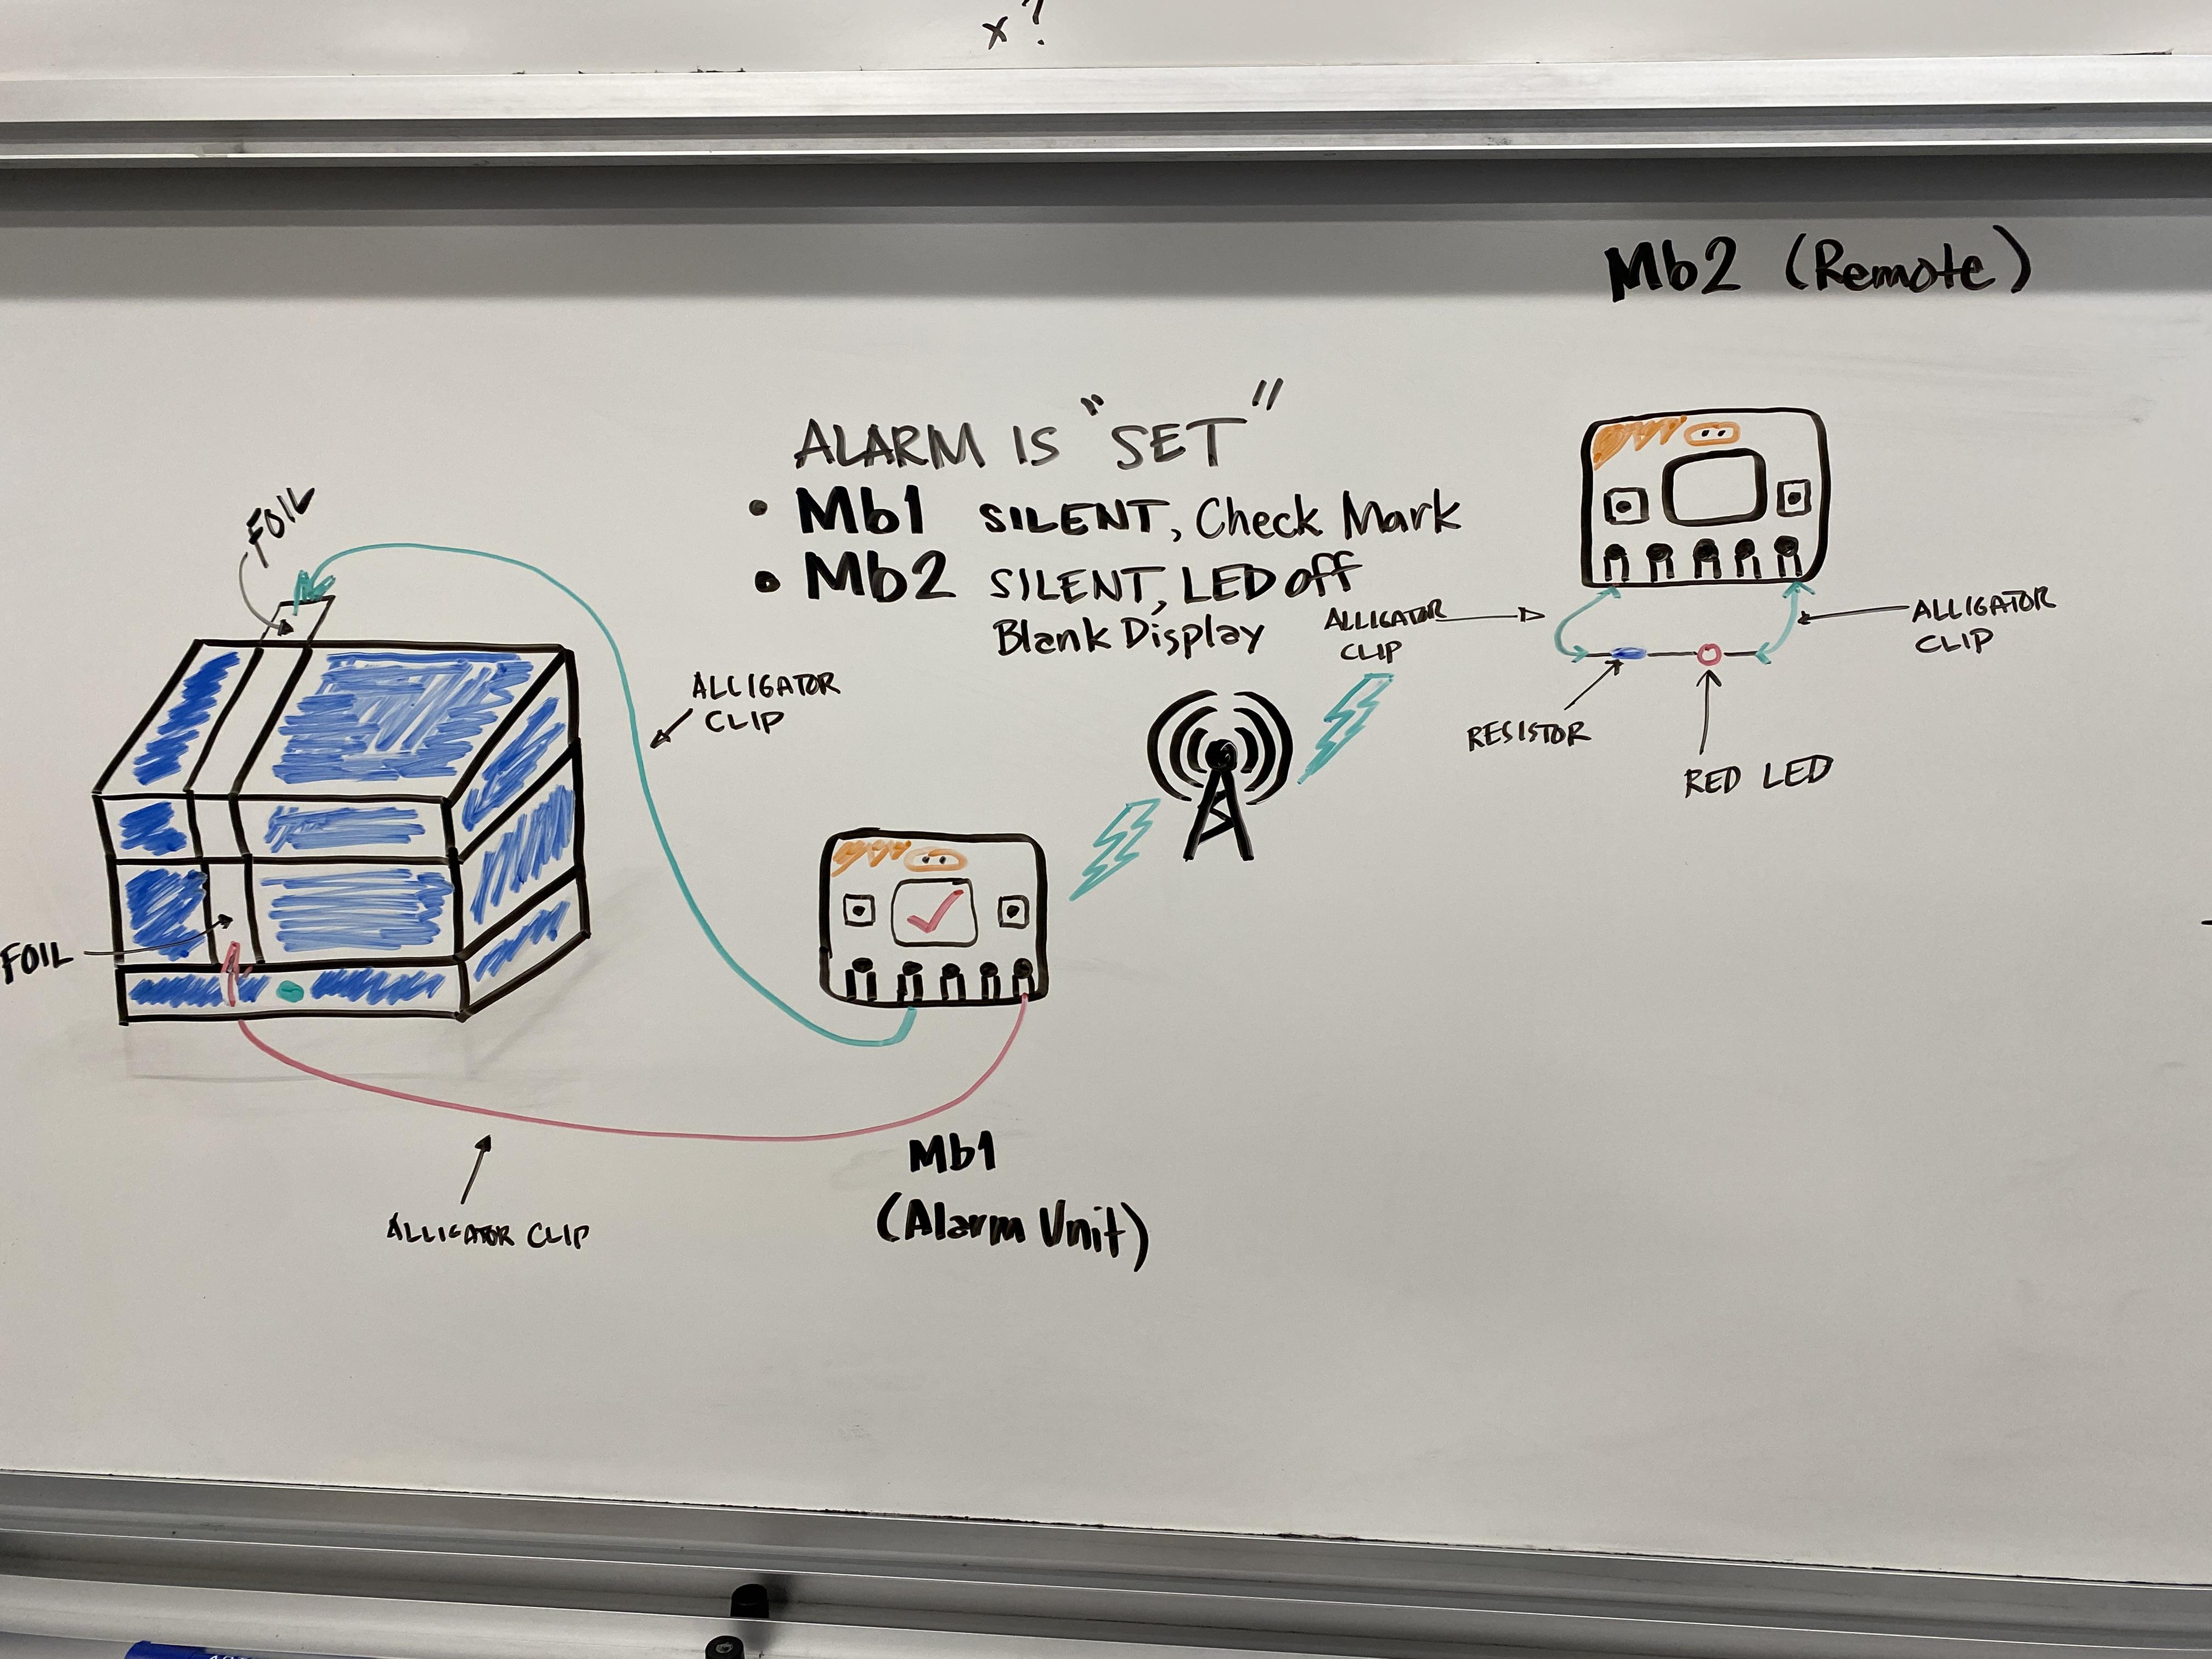 x?
Mb2 (Remote)
ALARM IS "SET"
• Mb1 SILENT, Check Mark
• Mb2 SILENT, LED off
Blank Display
FOIL
ALLIGATOR
CLIP
ALLIGATOR
CLIP
ALLIGATOR
CLIP
RESISTOR
RED LED
FOIL
Mb1
(Alarm Unit)
ALLIGATOR CLIP